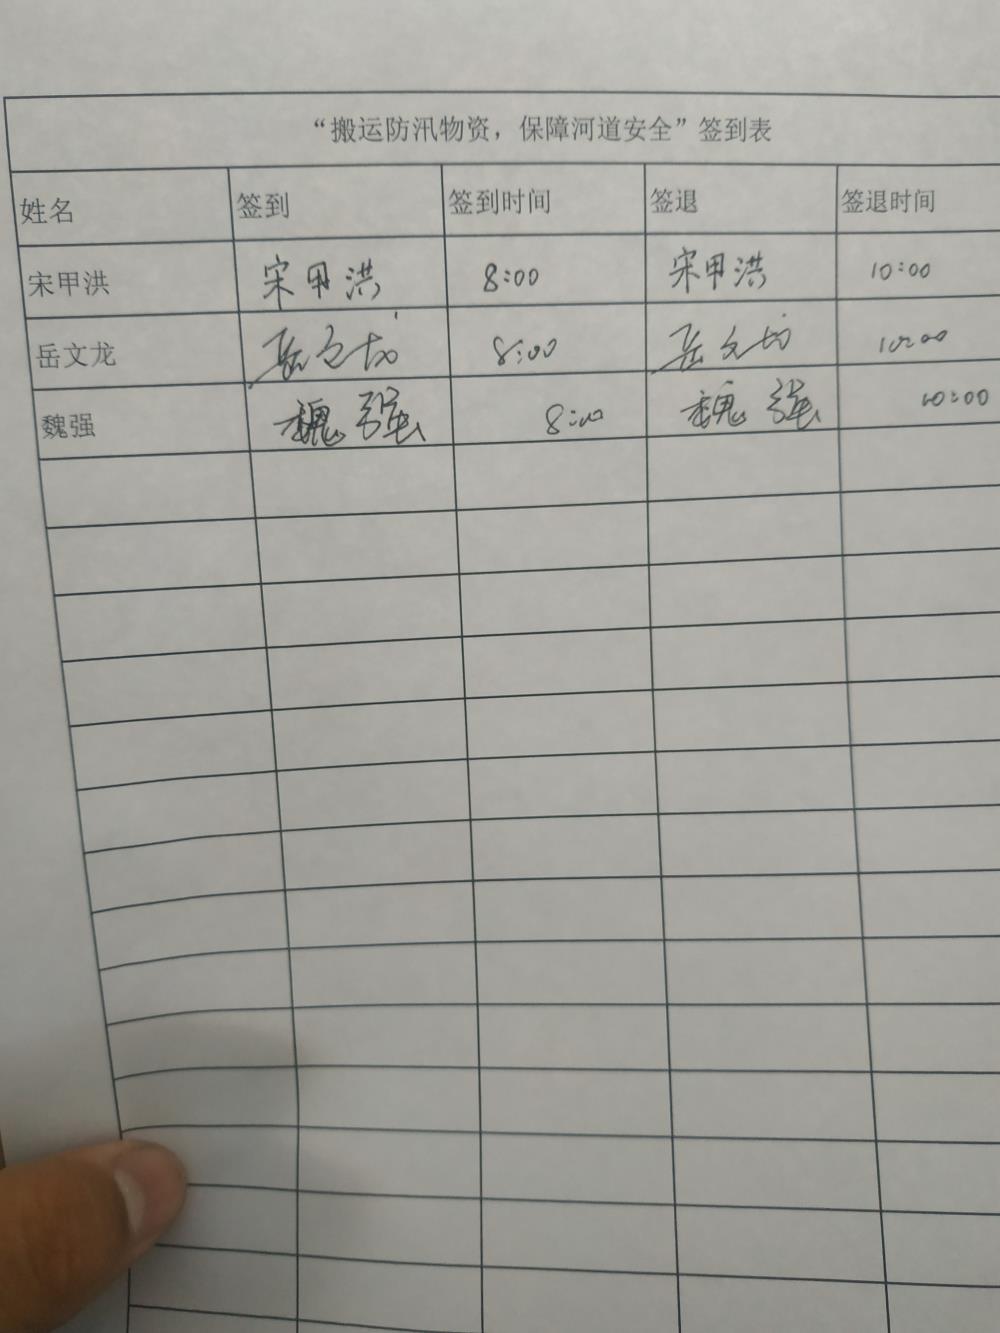 “搬运防汛物资，保障河道安全”签到表
姓名 签到 签到时间 签退 签退时间
宋甲洪 宋甲洪 8:00 宋甲洪 10:00
岳文龙 岳文龙 8:00 岳文龙 10:00
魏强 魏强 8:00 魏强 10:00